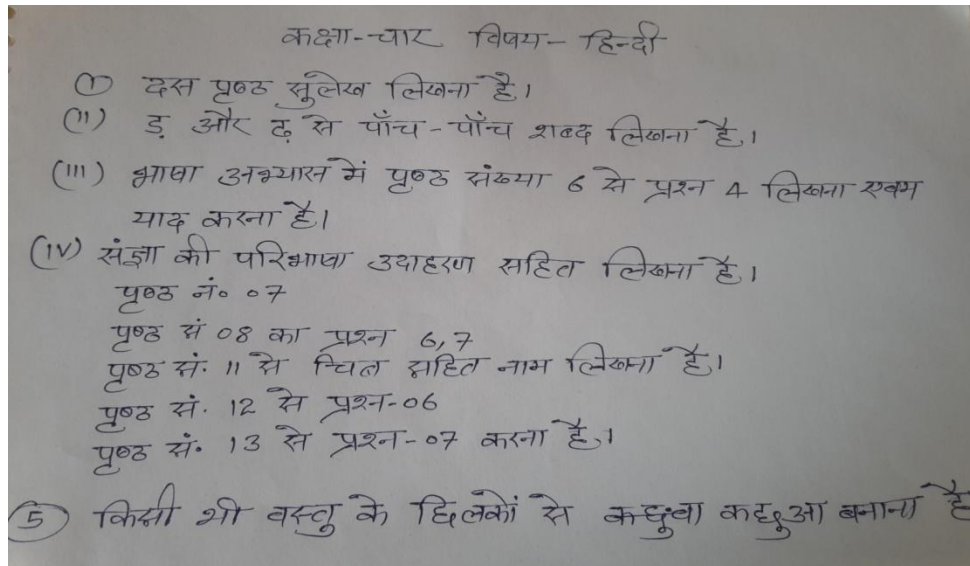 कक्षा-चार विषय- हिन्दी
(I) दस पृष्ठ सुलेख लिखना है।
(II) ड़ और ढ़ से पाँच-पाँच शब्द लिखना है।
(III) भाषा अभ्यास में पृष्ठ संख्या 6 से प्रश्न 4 लिखना एवम
याद करना है।
(IV) संज्ञा की परिभाषा उदाहरण सहित लिखना है।
पृष्ठ नं० 07
पृष्ठ सं 08 का प्रश्न 6,7
पृष्ठ सं. 11 से चित्र सहित नाम लिखना है।
पृष्ठ सं. 12 से प्रश्न-06
पृष्ठ सं. 13 से प्रश्न-07 करना है।
5 किसी भी वस्तु के छिलकों से कछुवा कछुआ बनाना है